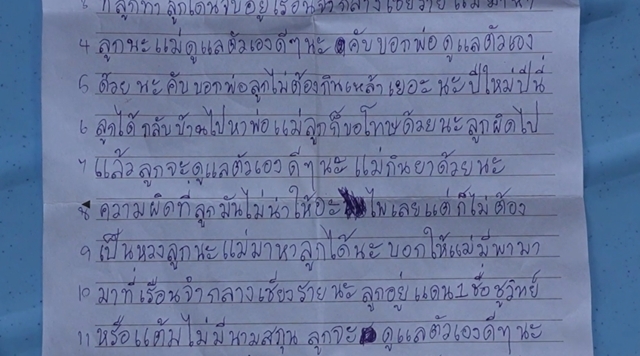 3 ที่ลูกทำ ลูกโดนจับอยู่เรือนจำกลางเชียงราย แม่มาหา
4 ลูกนะแม่ดูแลตัวเองดีๆนะ คับบอกพ่อ ดูแลตัวเอง
5 ด้วย นะคับบอกพ่อลูกไม่ต้องกินเหล้า เยอะ นะ ปีใหม่ปีนี้
6 ลูกได้ กลับบ้านไปหาพ่อ แม่ลูกก็ขอโทษด้วยนะลูกผิดไป
7 แล้วลูกจะดูแลตัวเอง ดีๆนะ แม่กินยาด้วยนะ
8 ความผิดที่ลูกมันไม่น่าให้อะ ไพเลยแต่ก็ไม่ต้อง
9 เป็นหวงลูกนะแม่มาหาลูกได้นะบอกให้แม่มีพามา
10 มาที่เรือนจำกลางเชียงรายนะ ลูกอยู่ แดน 1 ชื่อ ชูวิทย์
11 หรือแต้มไม่มีนามสกุน ลูกจะ ดูแลตัวเองดีๆนะ